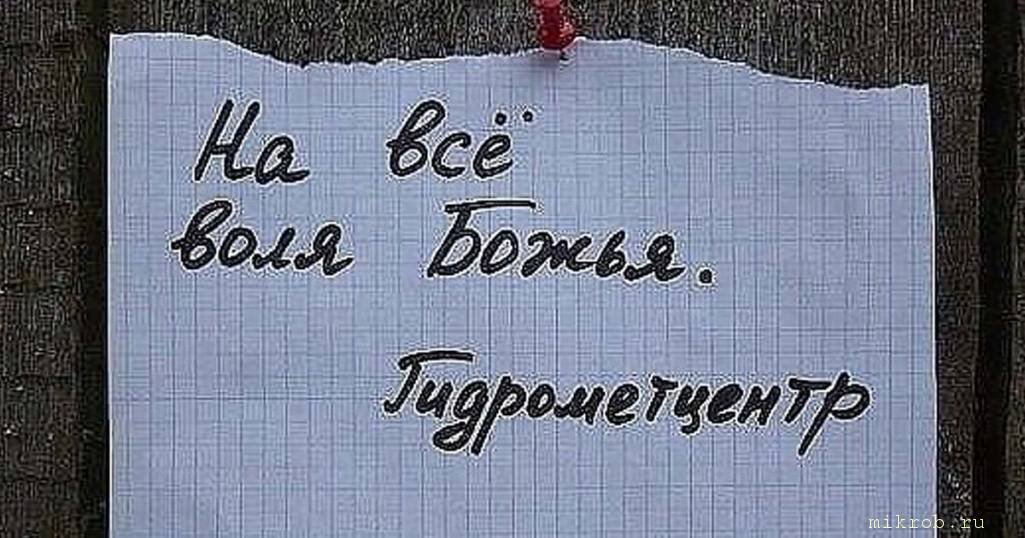 На всё
воля Божья.
Гидрометцентр
mikrob.ru